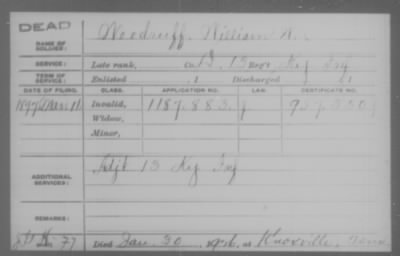 DEAD
NAME OF SOLDIER: Woodruff, William A.
SERVICE: Late rank, Co. D, 13 Reg't Ky Inf
TERM OF SERVICE: Enlisted , 1 Discharged , 1
DATE OF FILING. CLASS. APPLICATION NO. LAW. CERTIFICATE NO.
1897 Mar 11 Invalid, 1187.883
Widow,
Minor,
ADDITIONAL SERVICES: Adjt 13 Ky Inf
REMARKS:
Died Jan. 30, 1926, at Knoxville, Tenn